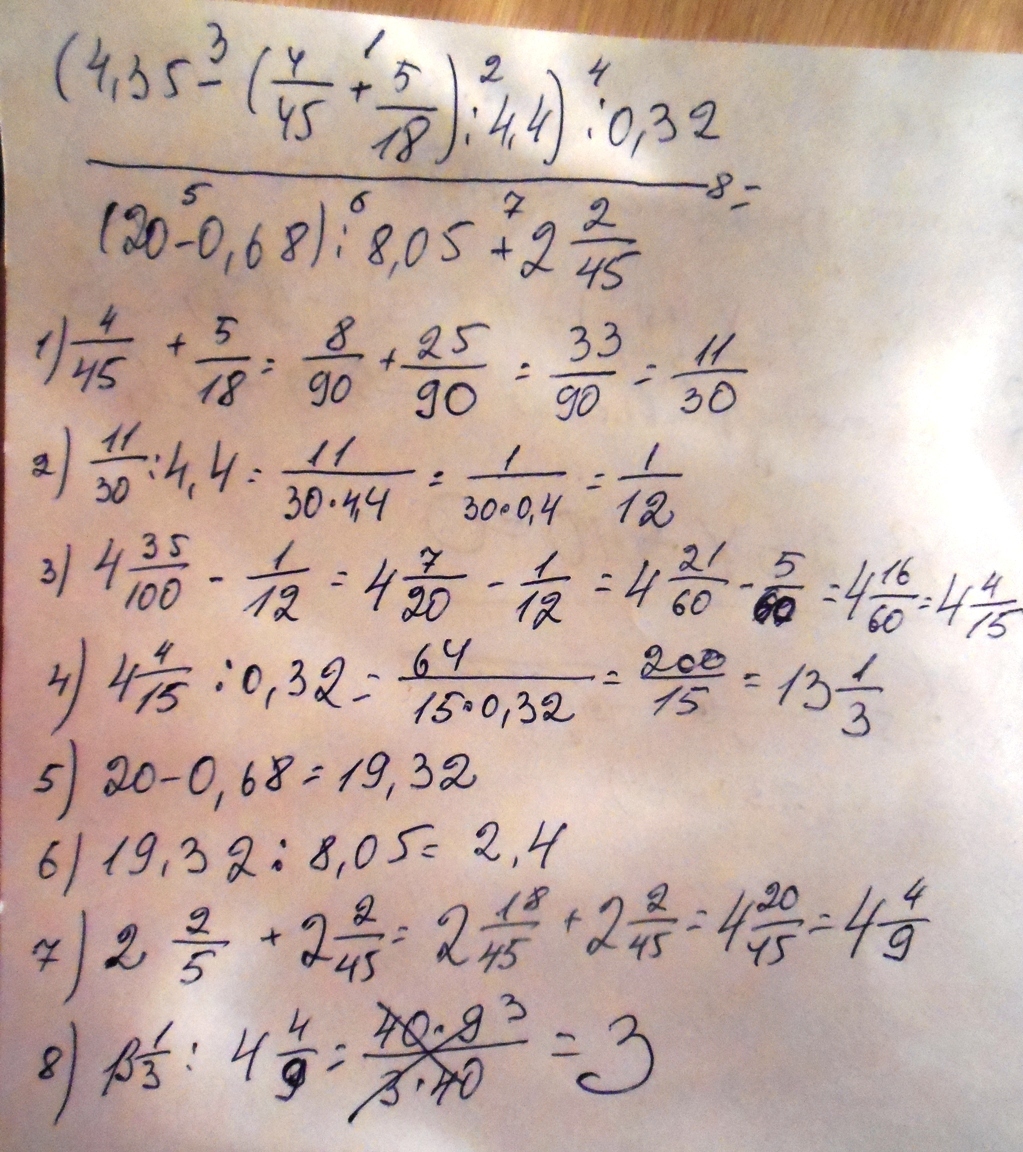 (4,35 - ³ (4/45 + ¹ 5/18) : ² 4,4) : ⁴ 0,32
(20 - ⁵ 0,68) : ⁶ 8,05 + ⁷ 2 2/45 ⁸ =
1) 4/45 + 5/18 = 8/90 + 25/90 = 33/90 = 11/30
2) 11/30 : 4,4 = 11/30·4,4 = 1/30·0,4 = 1/12
3) 4 35/100 - 1/12 = 4 7/20 - 1/12 = 4 21/60 - 5/60 = 4 16/60 = 4 4/15
4) 4 4/15 : 0,32 = 64/15·0,32 = 200/15 = 13 1/3
5) 20 - 0,68 = 19,32
6) 19,32 : 8,05 = 2,4
7) 2 2/5 + 2 2/45 = 2 18/45 + 2 2/45 = 4 20/45 = 4 4/9
8) 13 1/3 : 4 4/9 = 40·9 3/3·40 = 3